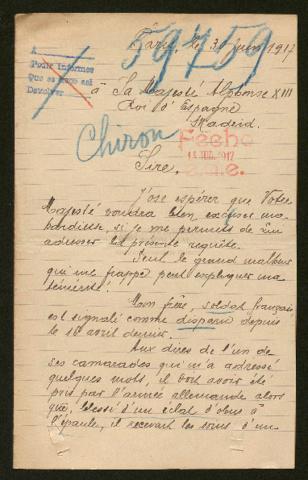 59759
Paris, le 3 Juin 1917
A
Pour informer
Que se haga así
Devolver
à Sa Majesté Alphonse XIII
Roi d'Espagne
Madrid.
Chiron
Fecho
1917
Sire,
J'ose espérer que Votre
Majesté voudra bien excuser ma
hardiesse, si je me permets de Lui
adresser la présente requête.
Seul le grand malheur
qui me frappe peut expliquer ma
témérité!
Mon frère, soldat français
est signalé comme disparu depuis
le 16 avril dernier.
Aux dires de l'un de
ses camarades qui m'a adressé
quelques mots, il doit avoir été
pris par l'armée allemande alors
que, blessé d'un éclat d'obus à
l'épaule, il recevait les soins d'un